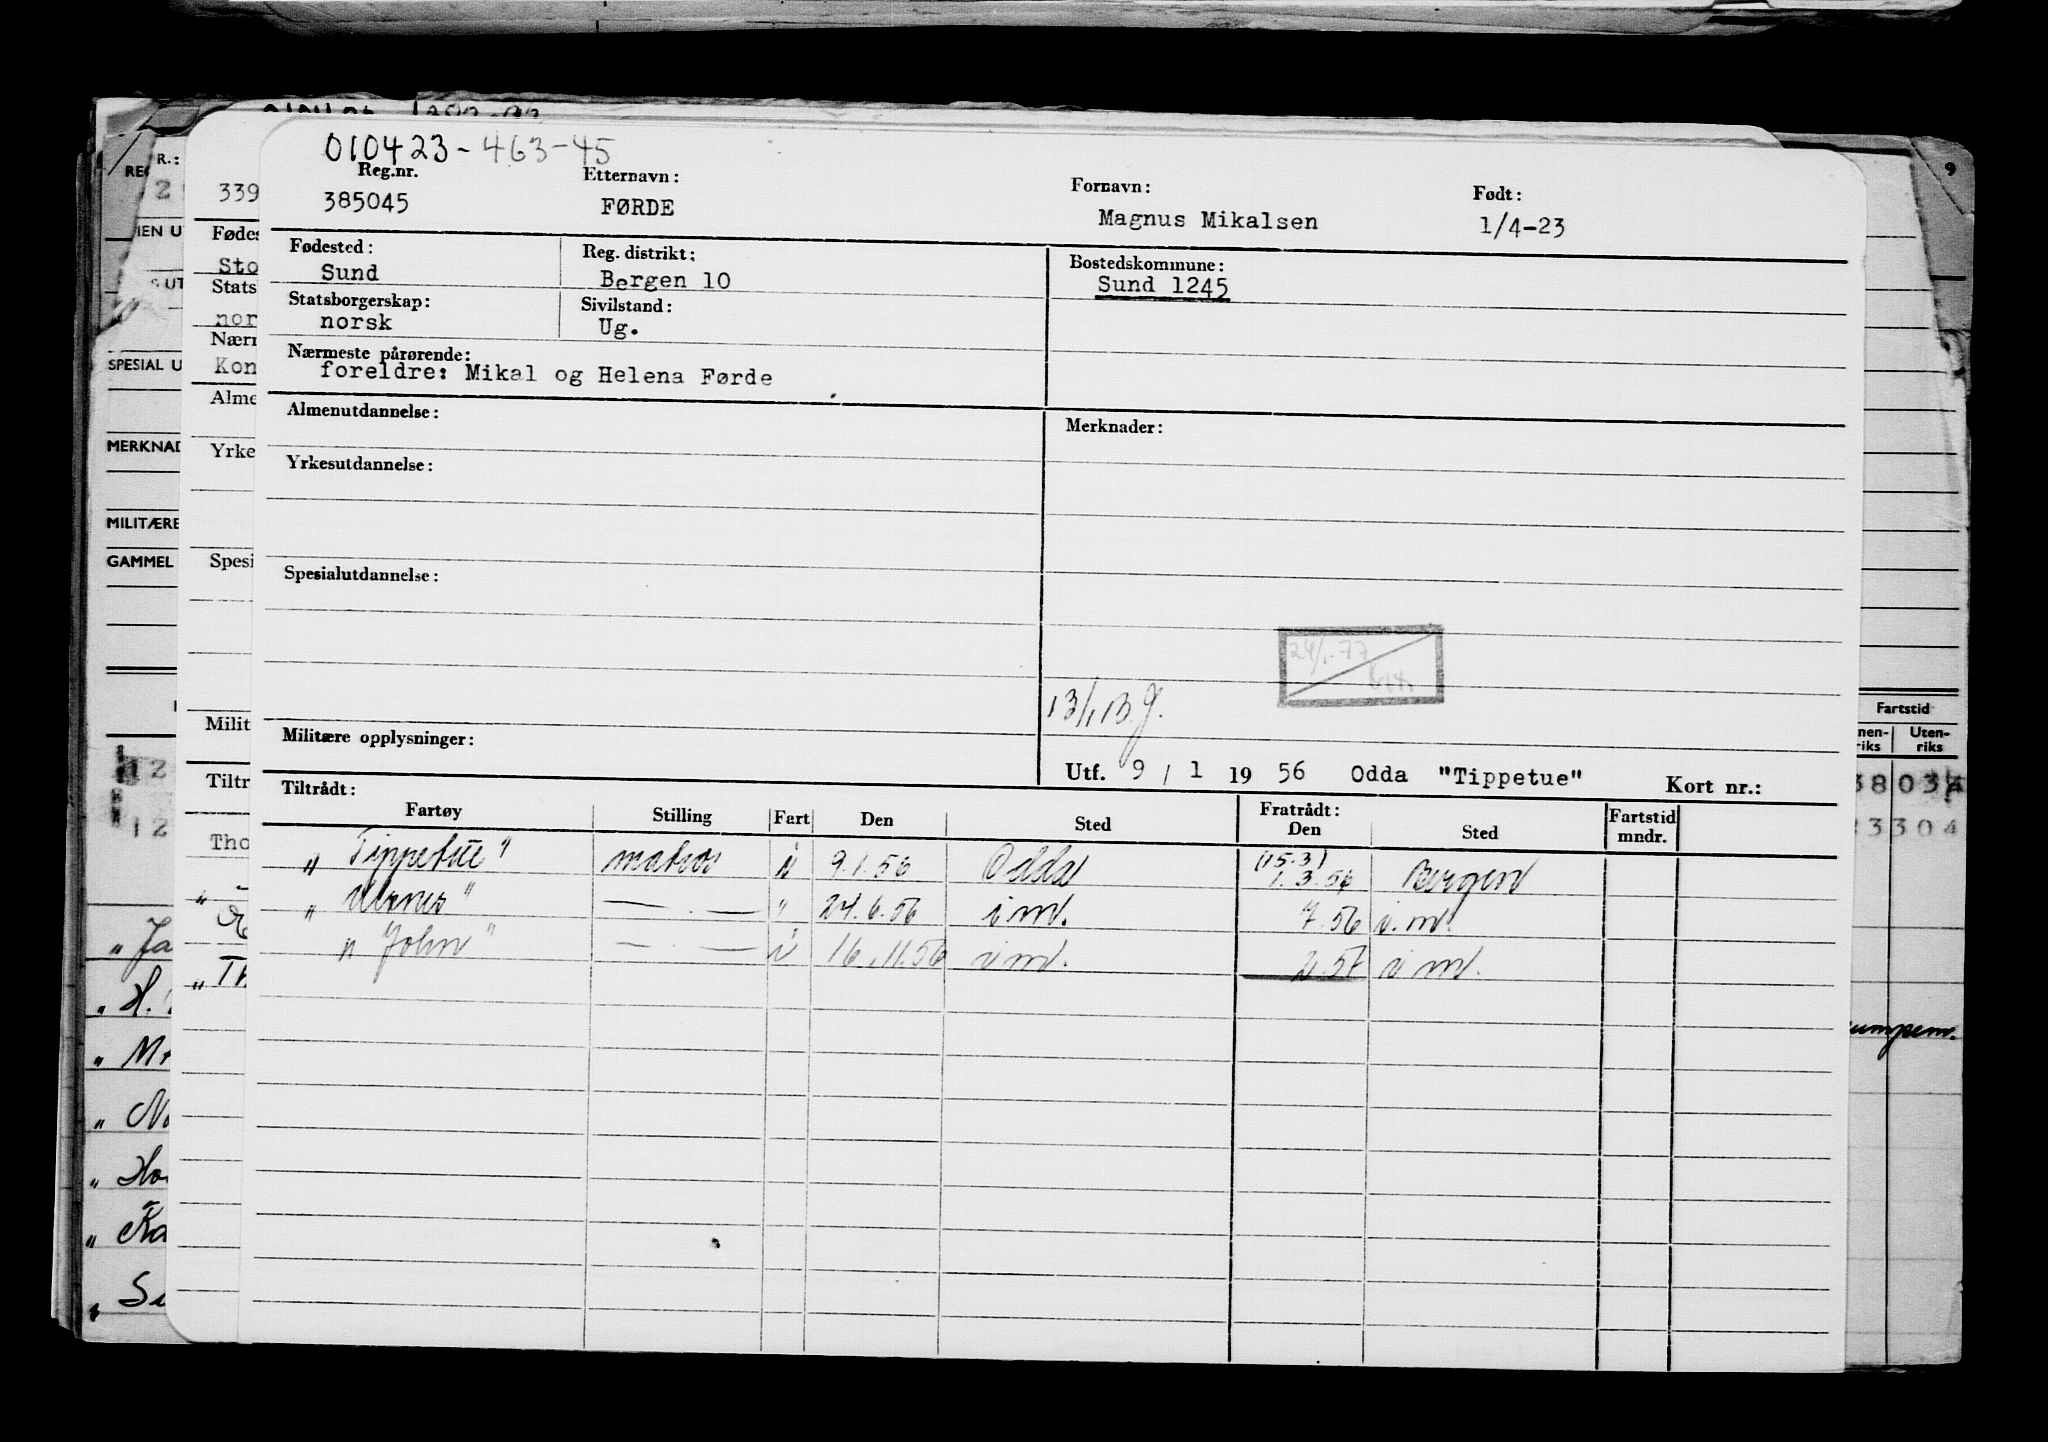 010423-463-45
Reg.nr. Etternavn: Fornavn: Født:
385045 FØRDE Magnus Mikalsen 1/4-23
Fødested: Reg. distrikt: Bostedskommune:
Sund Bergen 10 Sund 1245
Statsborgerskap: Sivilstand:
norsk Ug.
Nærmeste pårørende:
foreldre: Mikal og Helena Førde
Almenutdannelse: Merknader:
Yrkesutdannelse:
Spesialutdannelse:
24/1-77
13/1 B.J.
Militære opplysninger:
Utf. 9 / 1 19 56 Odda "Tippetue" Kort nr.:
Tiltrådt: Fratrådt:
Fartøy Stilling Fart Den Sted Den Sted Fartstid mndr.
"Tippetue" matros i 9.1.56 Odda (15.3) 1.3.56 Bergen
" — . — " 24.6.56 i m. 7.56 i. m.
"John" — . — i 16.11.56 i m. 2.57 i m.
R.:
REG
339
IEN UT
Fødes
Sto
Stats
nor
Nærm
SPESIAL U
Kon
Alme
MERKNAD
Yrke
MILITÆRE
GAMMEL
Spesi
Milit
Tiltr
Tho
9
Fartstid
nen-riks Uten-riks
38 03
23 304
umpem.
" Ja
" H.
" M
" No
" Ho
" Ka
" Si
" Th